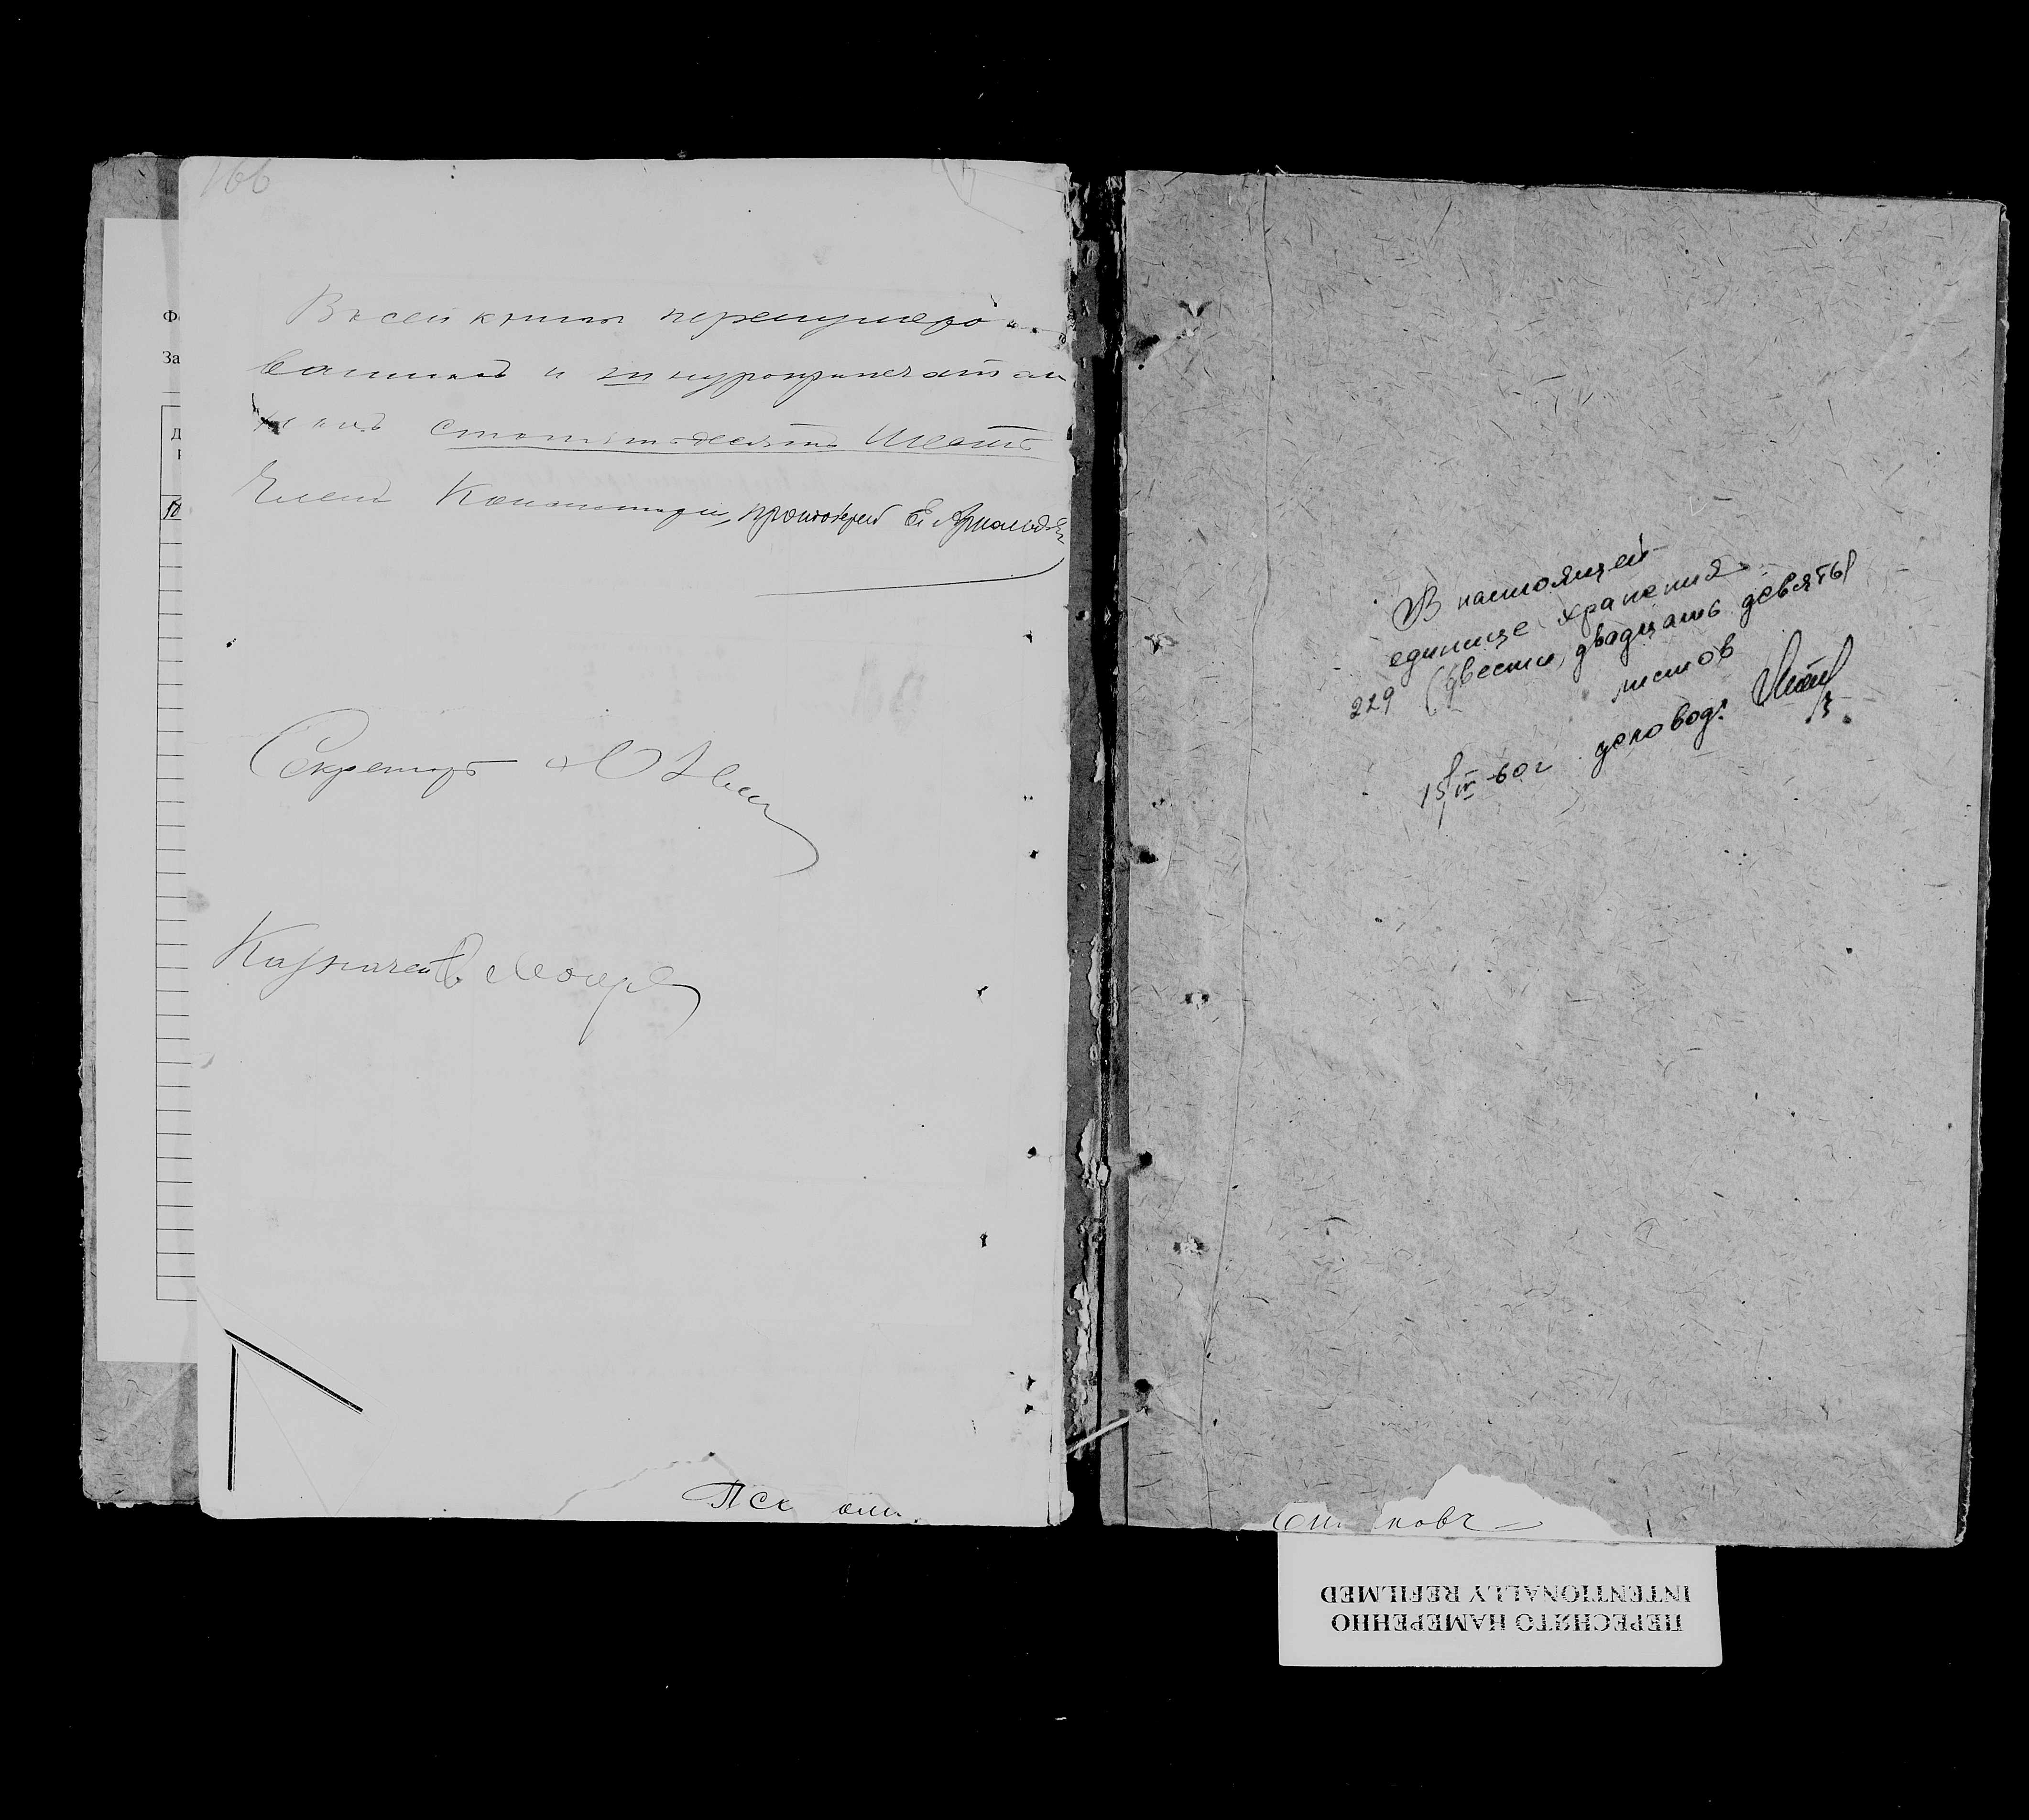 166
Въ сей книгѣ перенумеро-
ванныхъ и шнуроприпечатан
ныхъ стопятьдесятъ шесть
Членъ Консисторіи, протоіерей
Секретарь
Казначей
Пск
В настоящей
единице хранения
229 (двести двадцать девять)
листов
15/IV-60г деловод.
ПЕРЕСНЯТО НАМЕРЕННО
INTENTIONALLY REFILMED